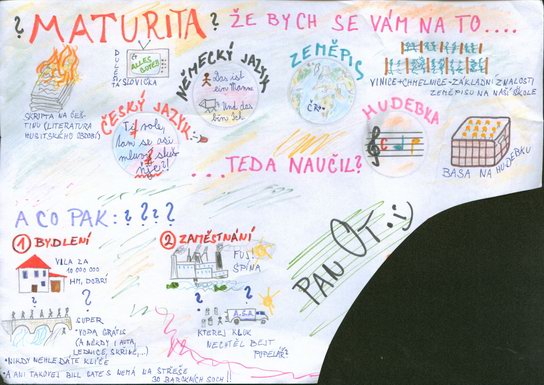 ? MATURITA? ŽE BYCH SE VÁM NA TO....
SKRIPTA NA ČEŠ-
TINU (LITERATURA
HUSITSKÉHO OBDOBÍ)
DŮLEŽI
TÁ SLOVÍČKA
ALLES
GUTE!
NĚMECKÝ JAZYK
Das ist
ein Mann
Und das
bin Ich
ZEMĚPIS
ČR
VINICE+CHMELNICE=ZÁKLADNÍ ZNALOSTI
ZEMĚPISU NA NAŠÍ ŠKOLE
ČESKÝ JAZYK
Ty vole,
kam se asi
mluví
HUDEBKA
BASA NA HUDEBKU
...TEDA NAUČIL?
A CO PAK: ? ? ? ?
① BYDLENÍ
VILA ZA
10 000 000
HM, DOBRÝ
?
?
SUPER
•VODA GRATIS
(A NĚKDY I AUTA,
LEDNICE, SKŘÍNĚ,...)
•NIKDY NEHLEDÁTE KLÍČE
•A ANI TAKOVEJ BILL GATES NEMÁ NA STŘEŠE
30 BAROKNÍCH SOCH!!
② ZAMĚSTNÁNÍ
FUJ!
ŠPÍNA
?
?
A.S.A.
KTEREJ KLUK
NECHTĚL BEJT
POPELÁŘ?
PAN OT :-)